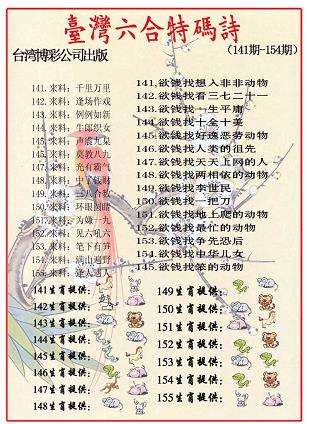 臺灣六合特碼詩
台湾博彩公司出版
(141期-154期)
141.来料：千里万里
142.来料：逢场作戏
143.来料：例例如新
144.来料：牛郎织女
145.来料：声震九泉
146.来料：莫教八九
147.来料：光有霸气
148.来料：中了钱财
149.来料：三八合数
150.来料：环眼圆睛
151.来料：为嫌一九
152.来料：见六吼六
153.来料：笔下有笋
154.来料：满山遍野
155.来料：逢人通人
141.欲钱找想入非非动物
142.欲钱找看三七二十一
143.欲钱找一生平庸
144.欲钱找十全十美
145.欲钱找好逸恶劳动物
146.欲钱找人类的祖先
147.欲钱找天天上网的人
148.欲钱找两相依的动物
149.欲钱找李世民
150.欲钱找一把刀
151.欲钱找地上爬的动物
152.欲钱找最忙的动物
153.欲钱找争先恐后
154.欲钱找中华儿女
145.欲钱找笨的动物
141生肖提供：
142生肖提供：
143生肖提供：
144生肖提供：
145生肖提供：
146生肖提供：
147生肖提供：
148生肖提供：
149生肖提供：
150生肖提供：
151生肖提供：
152生肖提供：
153生肖提供：
154生肖提供：
155生肖提供：